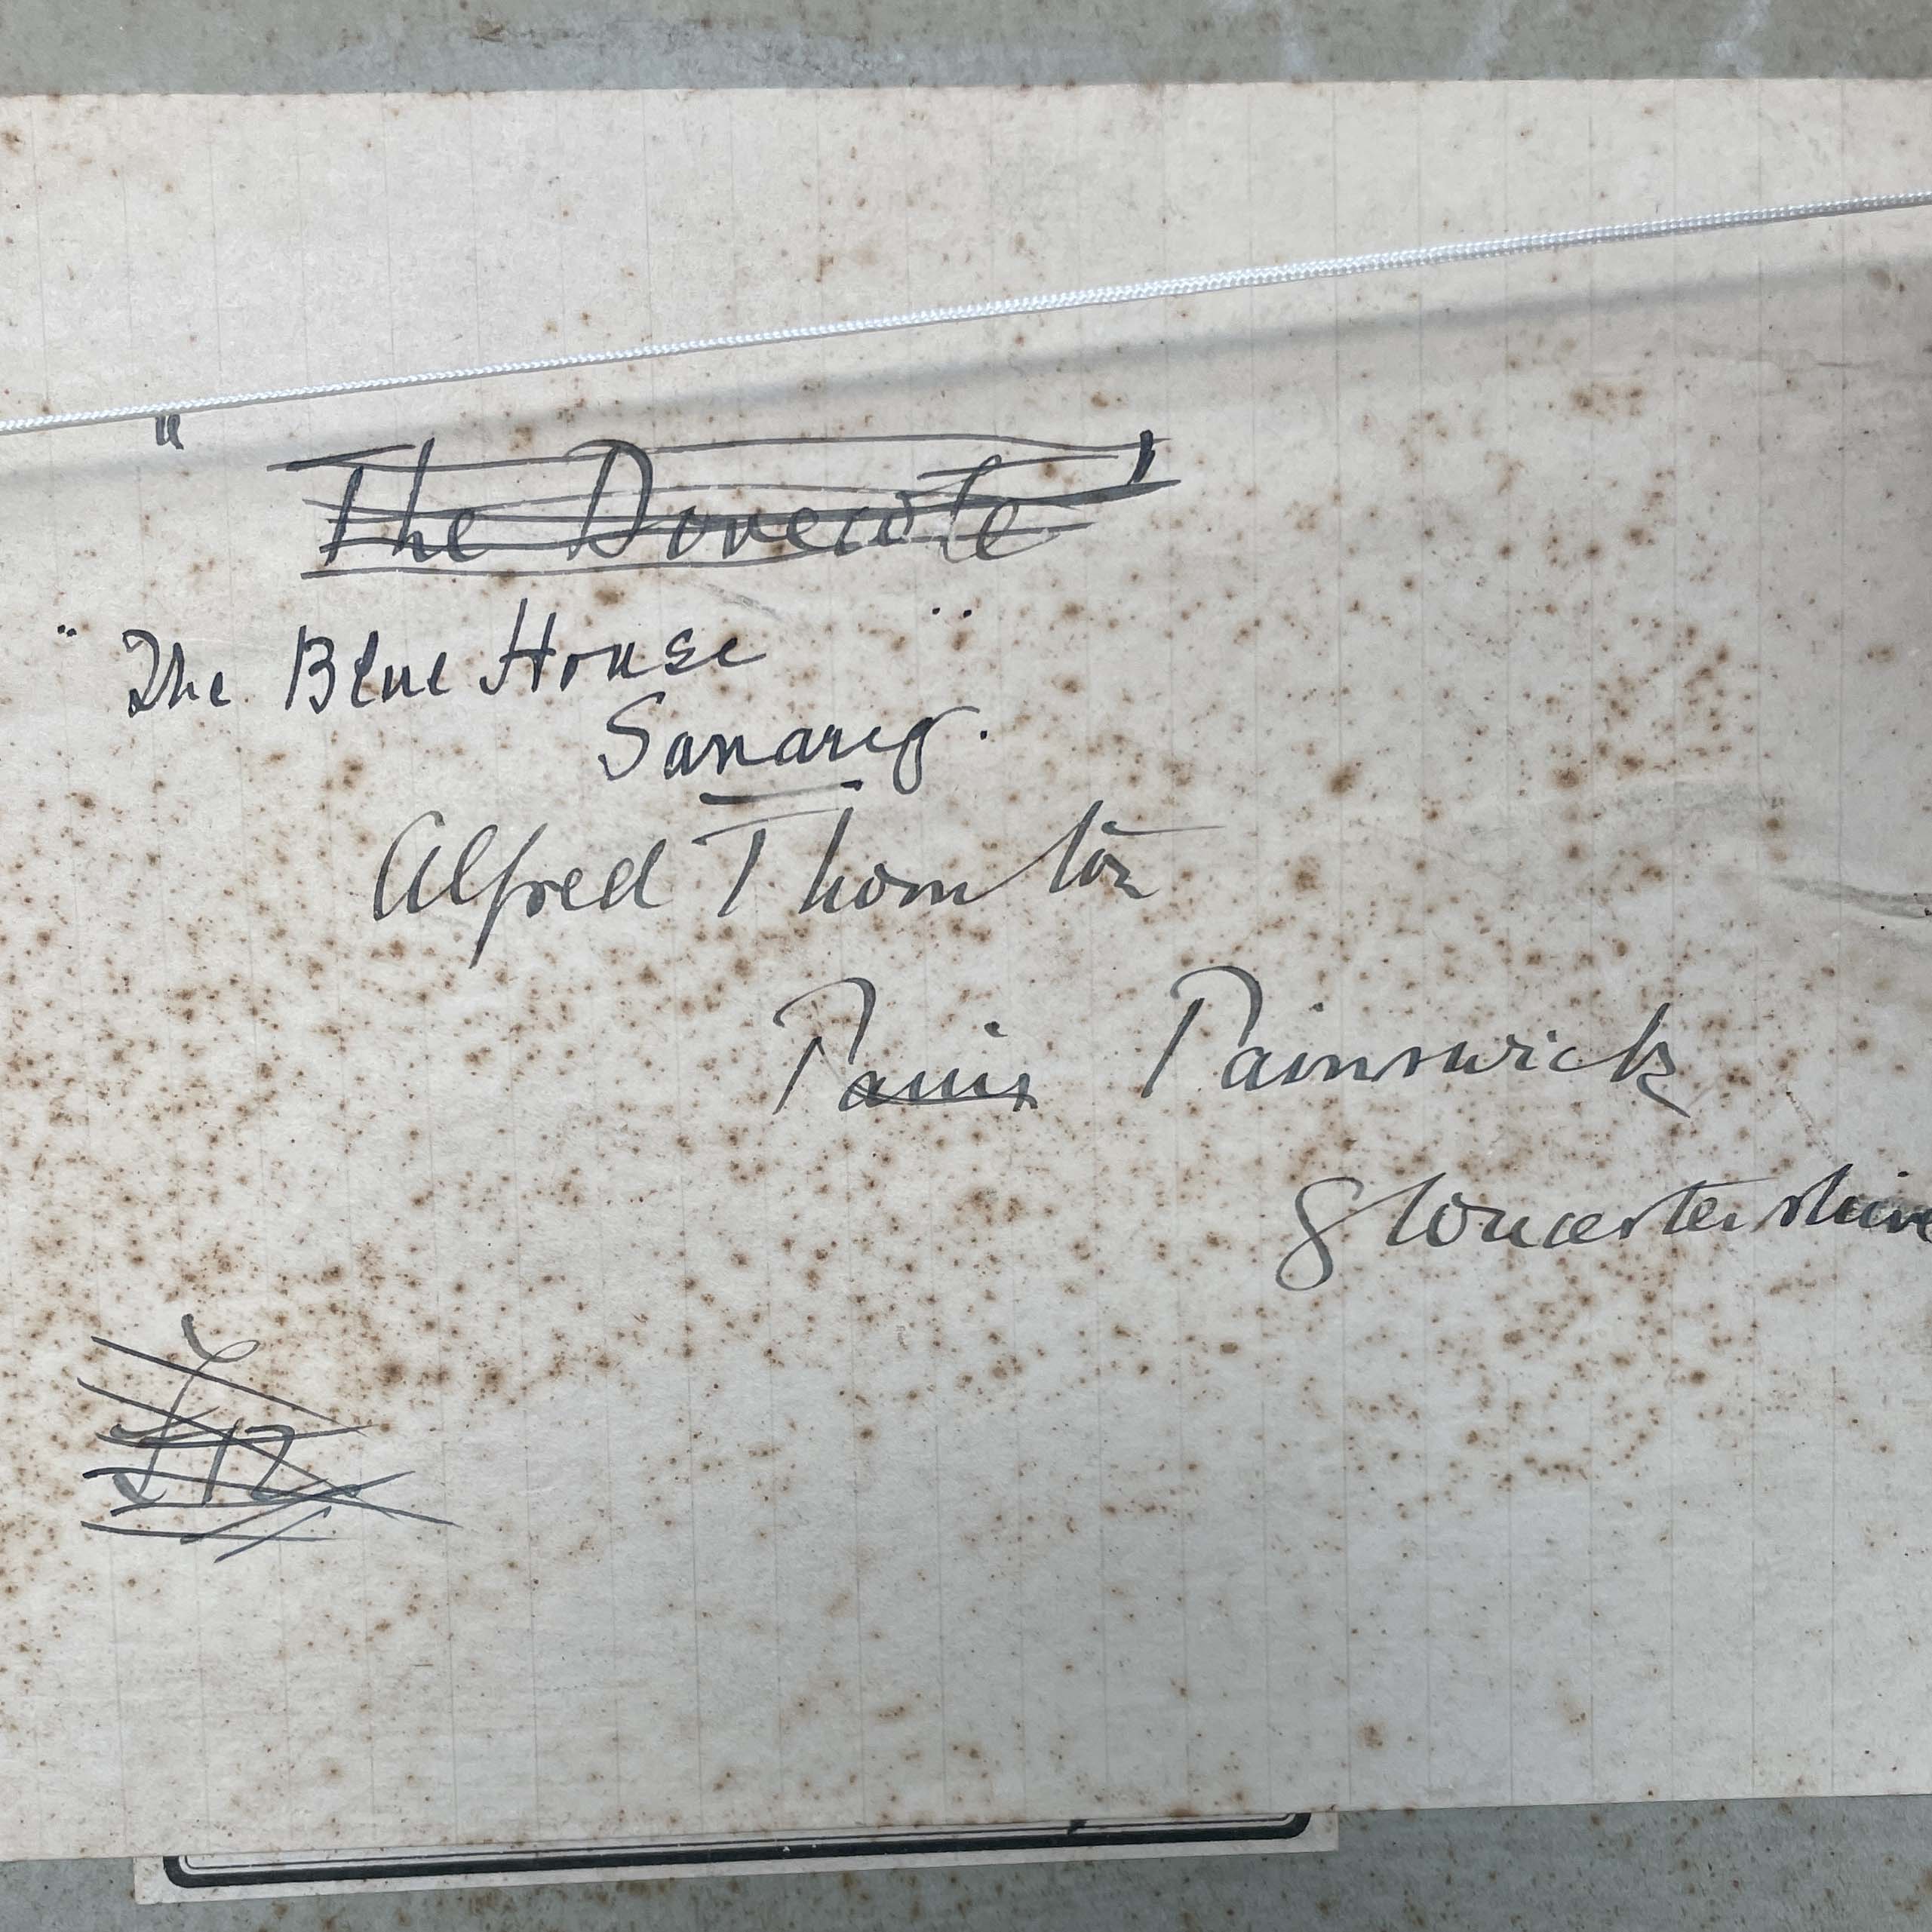 "The Dovecote"
"The Blue House"
Sanary.
Alfred Thornton
Painswick
Gloucestershire
£12